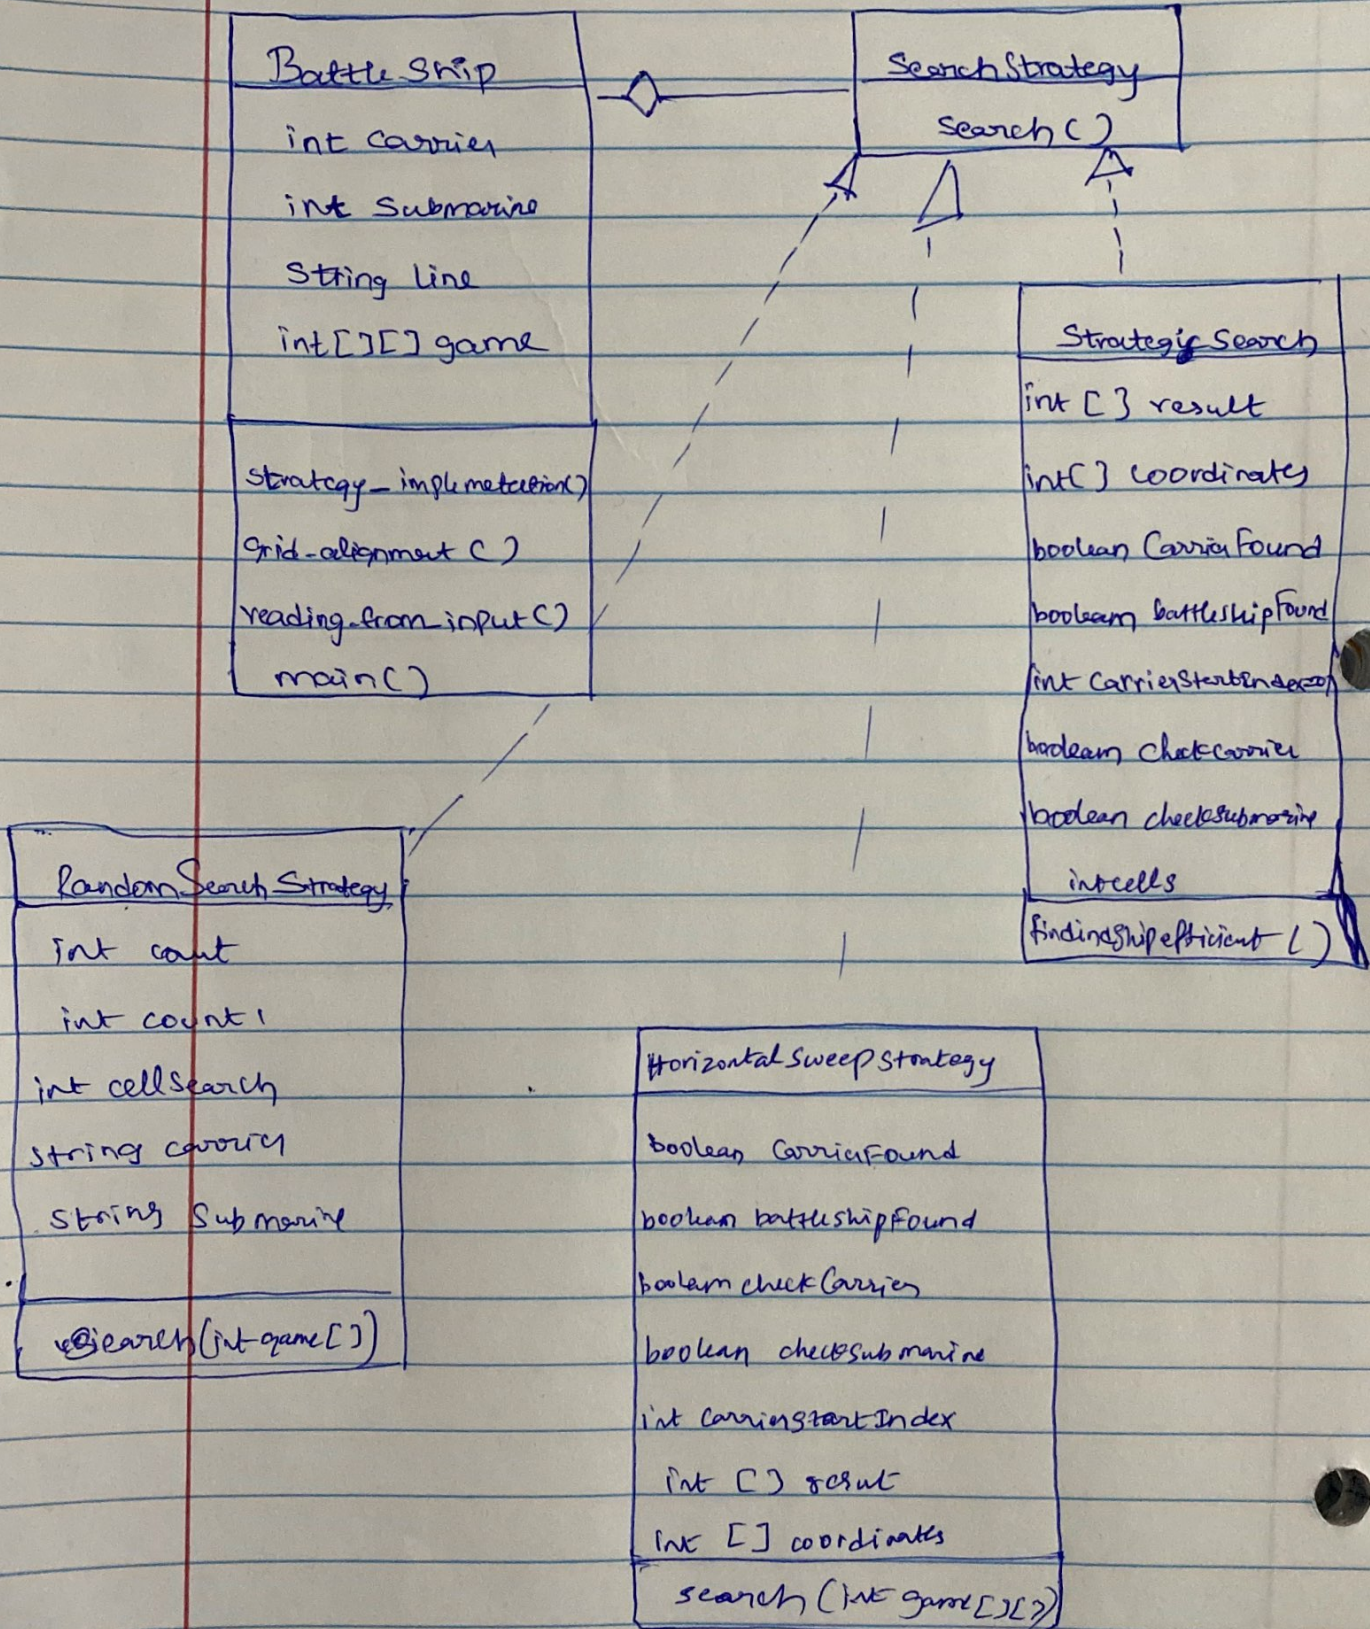 BattleShip
int carrier
int submarine
String line
int[][] game
strategy_implemetation()
grid-alignment ()
reading-from-input()
main()
SearchStrategy
Search()
Strategic Search
int [] result
int[] coordinates
boolean CarrierFound
boolean battleshipFound
int CarrierStartIndex
boolean checkcarrier
boolean checksubmarine
int cells
findingshipefficient ()
RandomSearchStrategy
int count
int count1
int cellsearch
String carrier
String Submarine
search(int game[])
HorizontalSweepStrategy
boolean CarrierFound
boolean battleshipFound
boolean checkCarrier
boolean checksubmarine
int carrierstartIndex
int [] result
int [] coordinates
search (int game[][])